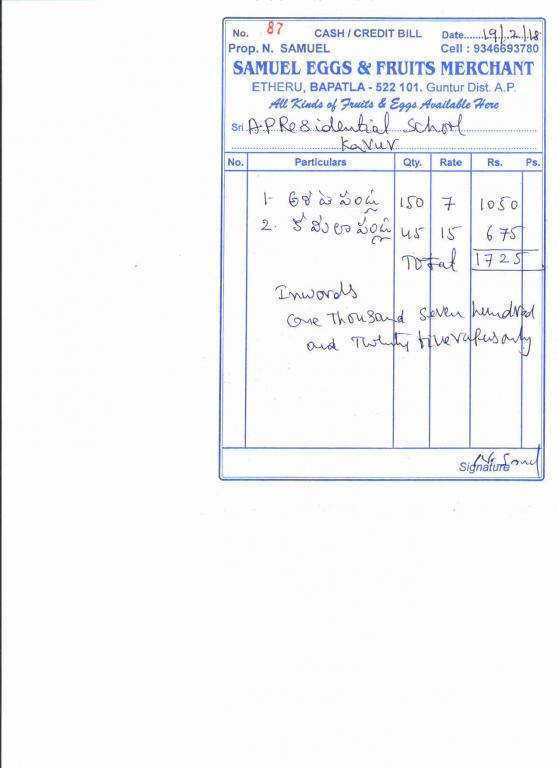 No. 87 CASH / CREDIT BILL Date......19/2/18
Prop. N. SAMUEL Cell : 9346693780
SAMUEL EGGS & FRUITS MERCHANT
ETHERU, BAPATLA - 522 101. Guntur Dist. A.P.
All Kinds of Fruits & Eggs Available Here
Sri A.P Residential School
Kavur
No. Particulars Qty. Rate Rs. Ps.
1- అరటి పండ్లు 150 7 1050
2. కమలా పండ్లు 45 15 675
Total 1725
Inwords
One Thousand Seven hundred
and Twenty five rupees only
Signature